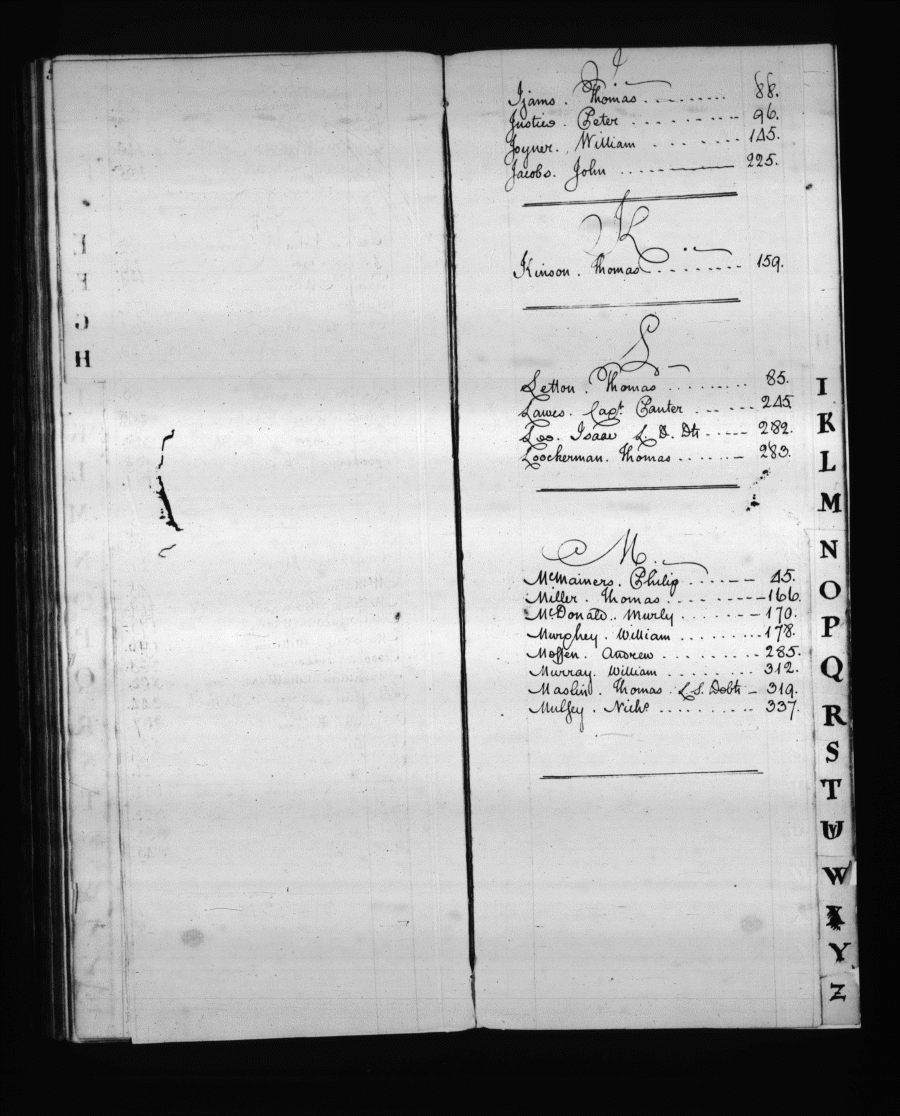 E
F
G
H
I.
Ijams. Thomas .......... 88.
Justice. Peter .......... 96.
Joyner. William .......... 145.
Jacobs. John .......... 225.
K.
Kinson. Thomas .......... 159.
L
Letton. Thomas .......... 85.
Lawes. Capt. Panter ...... 245
Lee. Isaac L. D. Dr ..... 282.
Loockerman. Thomas ....... 283.
M.
McMainers. Philip ....... 45.
Miller. Thomas .......... 166.
McDonald. Murly ....... 170.
Murphey. William ........ 178.
Moffen. Andrew ......... 285.
Murray. William ......... 312.
Maslin. Thomas L.S. Debts - 319.
Nichs. .......... 337.
I
K
L
M
N
O
P
Q
R
S
T
W
Y
Z